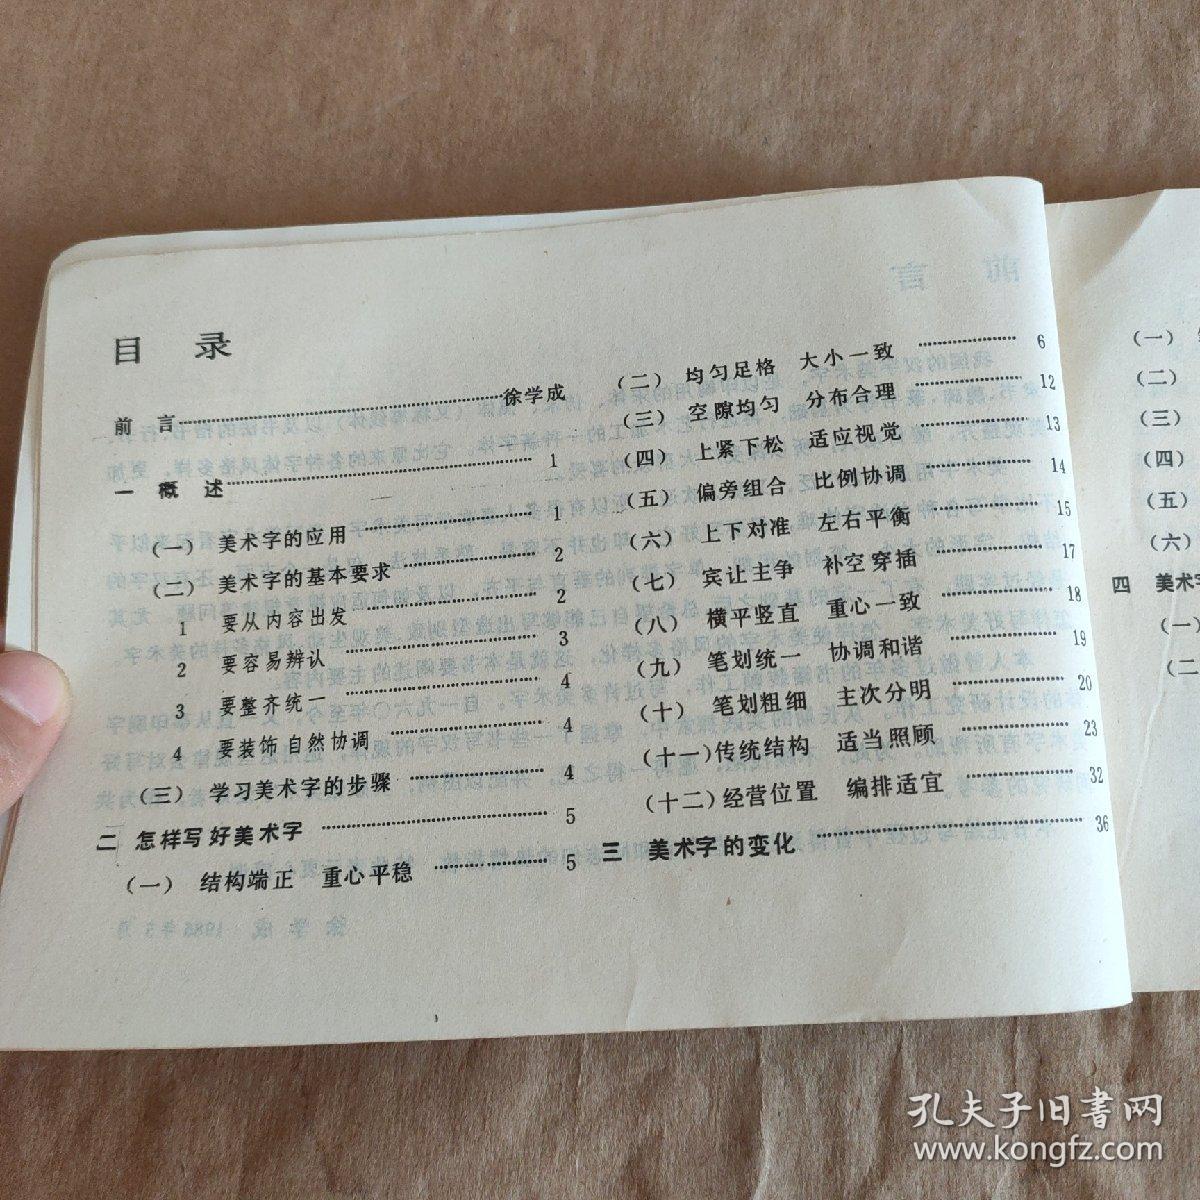 目 录
前 言……………………徐学成
一 概 述……………………1
(一) 美术字的应用……………………1
(二) 美术字的基本要求……………………2
1 要从内容出发……………………2
2 要容易辨认……………………3
3 要整齐统一……………………4
4 要装饰自然协调……………………4
(三) 学习美术字的步骤……………………4
二 怎样写好美术字……………………5
(一) 结构端正 重心平稳……………………5
(二) 均匀足格 大小一致……………………6
(三) 空隙均匀 分布合理……………………12
(四) 上紧下松 适应视觉……………………13
(五) 偏旁组合 比例协调……………………14
(六) 上下对准 左右平衡……………………15
(七) 宾让主争 补空穿插……………………17
(八) 横平竖直 重心一致……………………18
(九) 笔划统一 协调和谐……………………19
(十) 笔划粗细 主次分明……………………20
(十一)传统结构 适当照顾……………………23
(十二)经营位置 编排适宜……………………32
三 美术字的变化……………………36
(一)
(二)
(三)
(四)
(五)
(六)
四 美术字
(一)
(二
孔夫子旧书网
www.kongfz.com